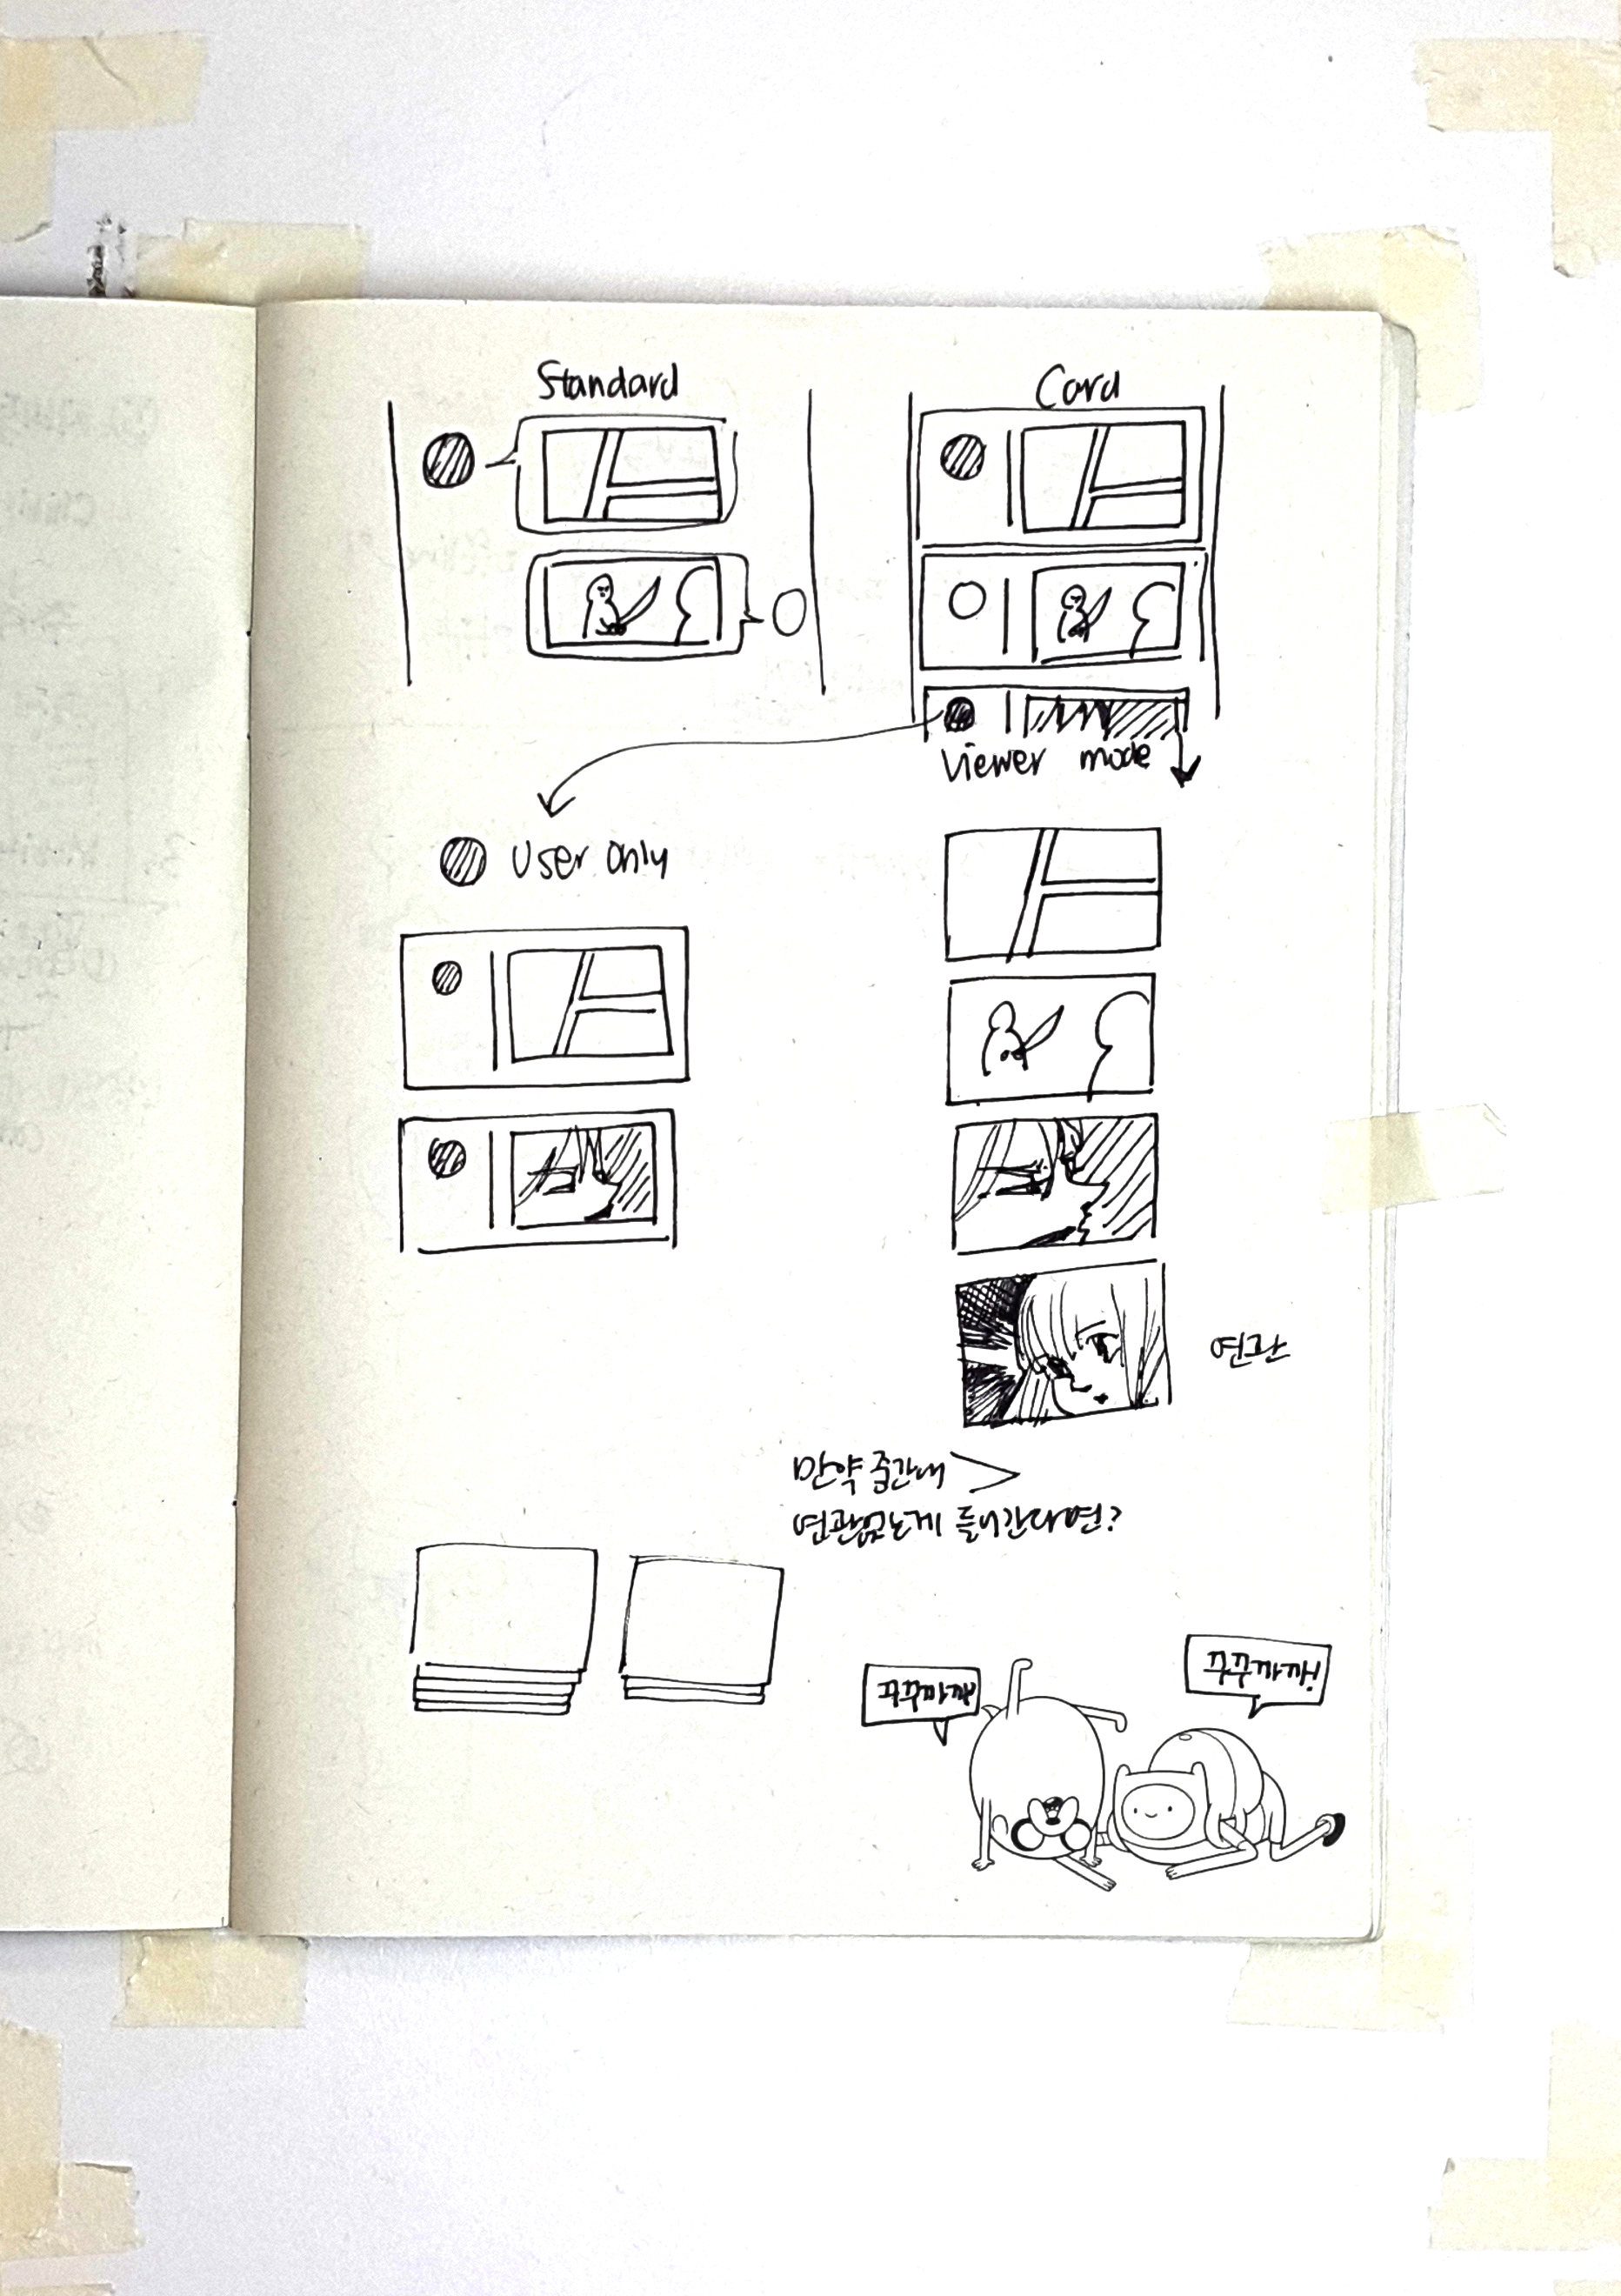 Standard
Card
Viewer mode
User only
연관
만약 중간에
연관없는게 들어간다면?
꾸꾸까까!